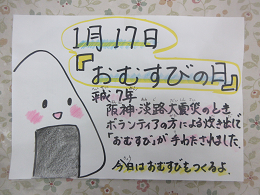 1月17日
『おむすびの日』
平成7年
阪神・淡路大震災のとき
ボランティアの方による炊き出しで
「おむすび」が手わたされました。
今日はおむすびをつくるよ